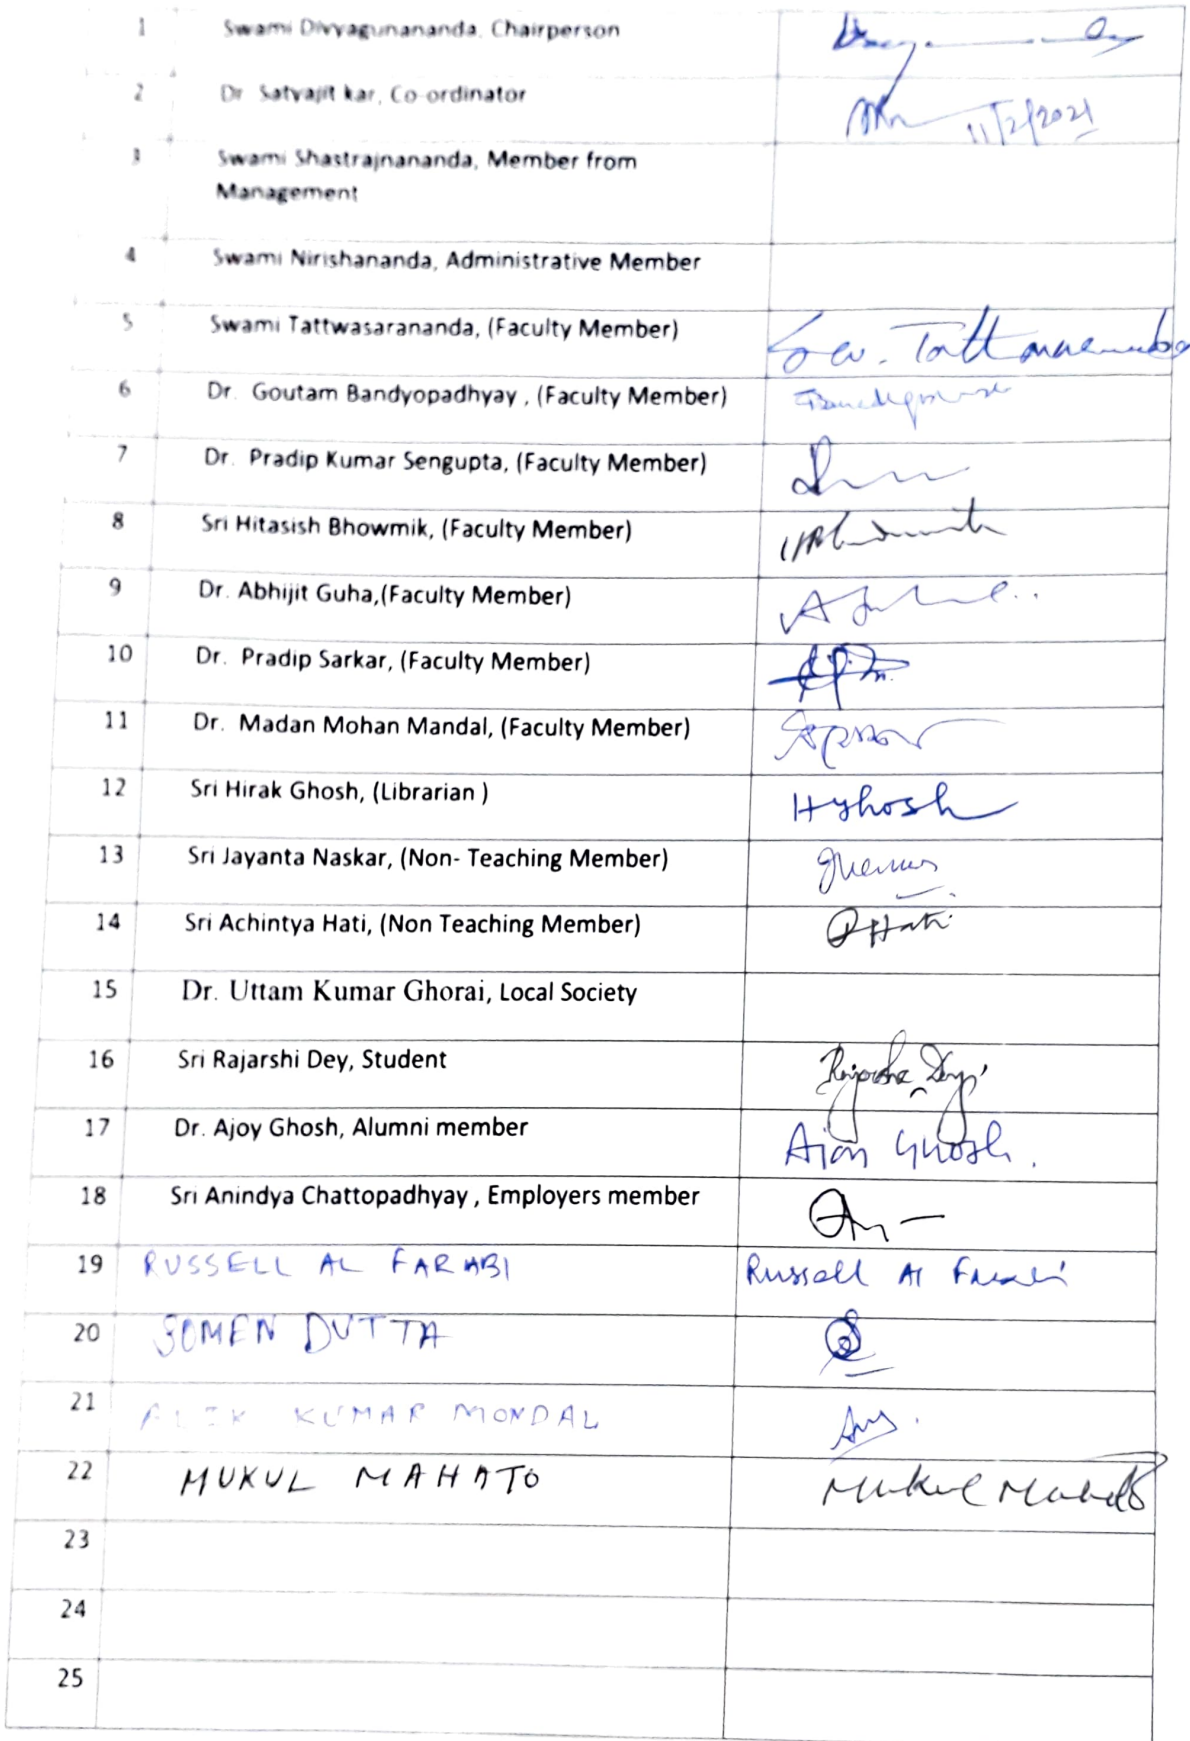 1 Swami Divyagunananda, Chairperson
2 Dr. Satyajit kar, Co-ordinator
11/2/2021
3 Swami Shastrajnananda, Member from
Management
4 Swami Nirishananda, Administrative Member
5 Swami Tattwasarananda, (Faculty Member)
6 Dr. Goutam Bandyopadhyay , (Faculty Member)
7 Dr. Pradip Kumar Sengupta, (Faculty Member)
8 Sri Hitasish Bhowmik, (Faculty Member)
9 Dr. Abhijit Guha,(Faculty Member)
10 Dr. Pradip Sarkar, (Faculty Member)
11 Dr. Madan Mohan Mandal, (Faculty Member)
12 Sri Hirak Ghosh, (Librarian ) HGhosh
13 Sri Jayanta Naskar, (Non- Teaching Member)
14 Sri Achintya Hati, (Non Teaching Member) Hati
15 Dr. Uttam Kumar Ghorai, Local Society
16 Sri Rajarshi Dey, Student Rajarshi Dey
17 Dr. Ajoy Ghosh, Alumni member Ajoy Ghosh.
18 Sri Anindya Chattopadhyay , Employers member
19 RUSSELL AL FARABI Russell Al Farabi
20 SOMEN DUTTA
21 KUMAR MONDAL
22 MUKUL MAHATO Mukul Mahato
23
24
25